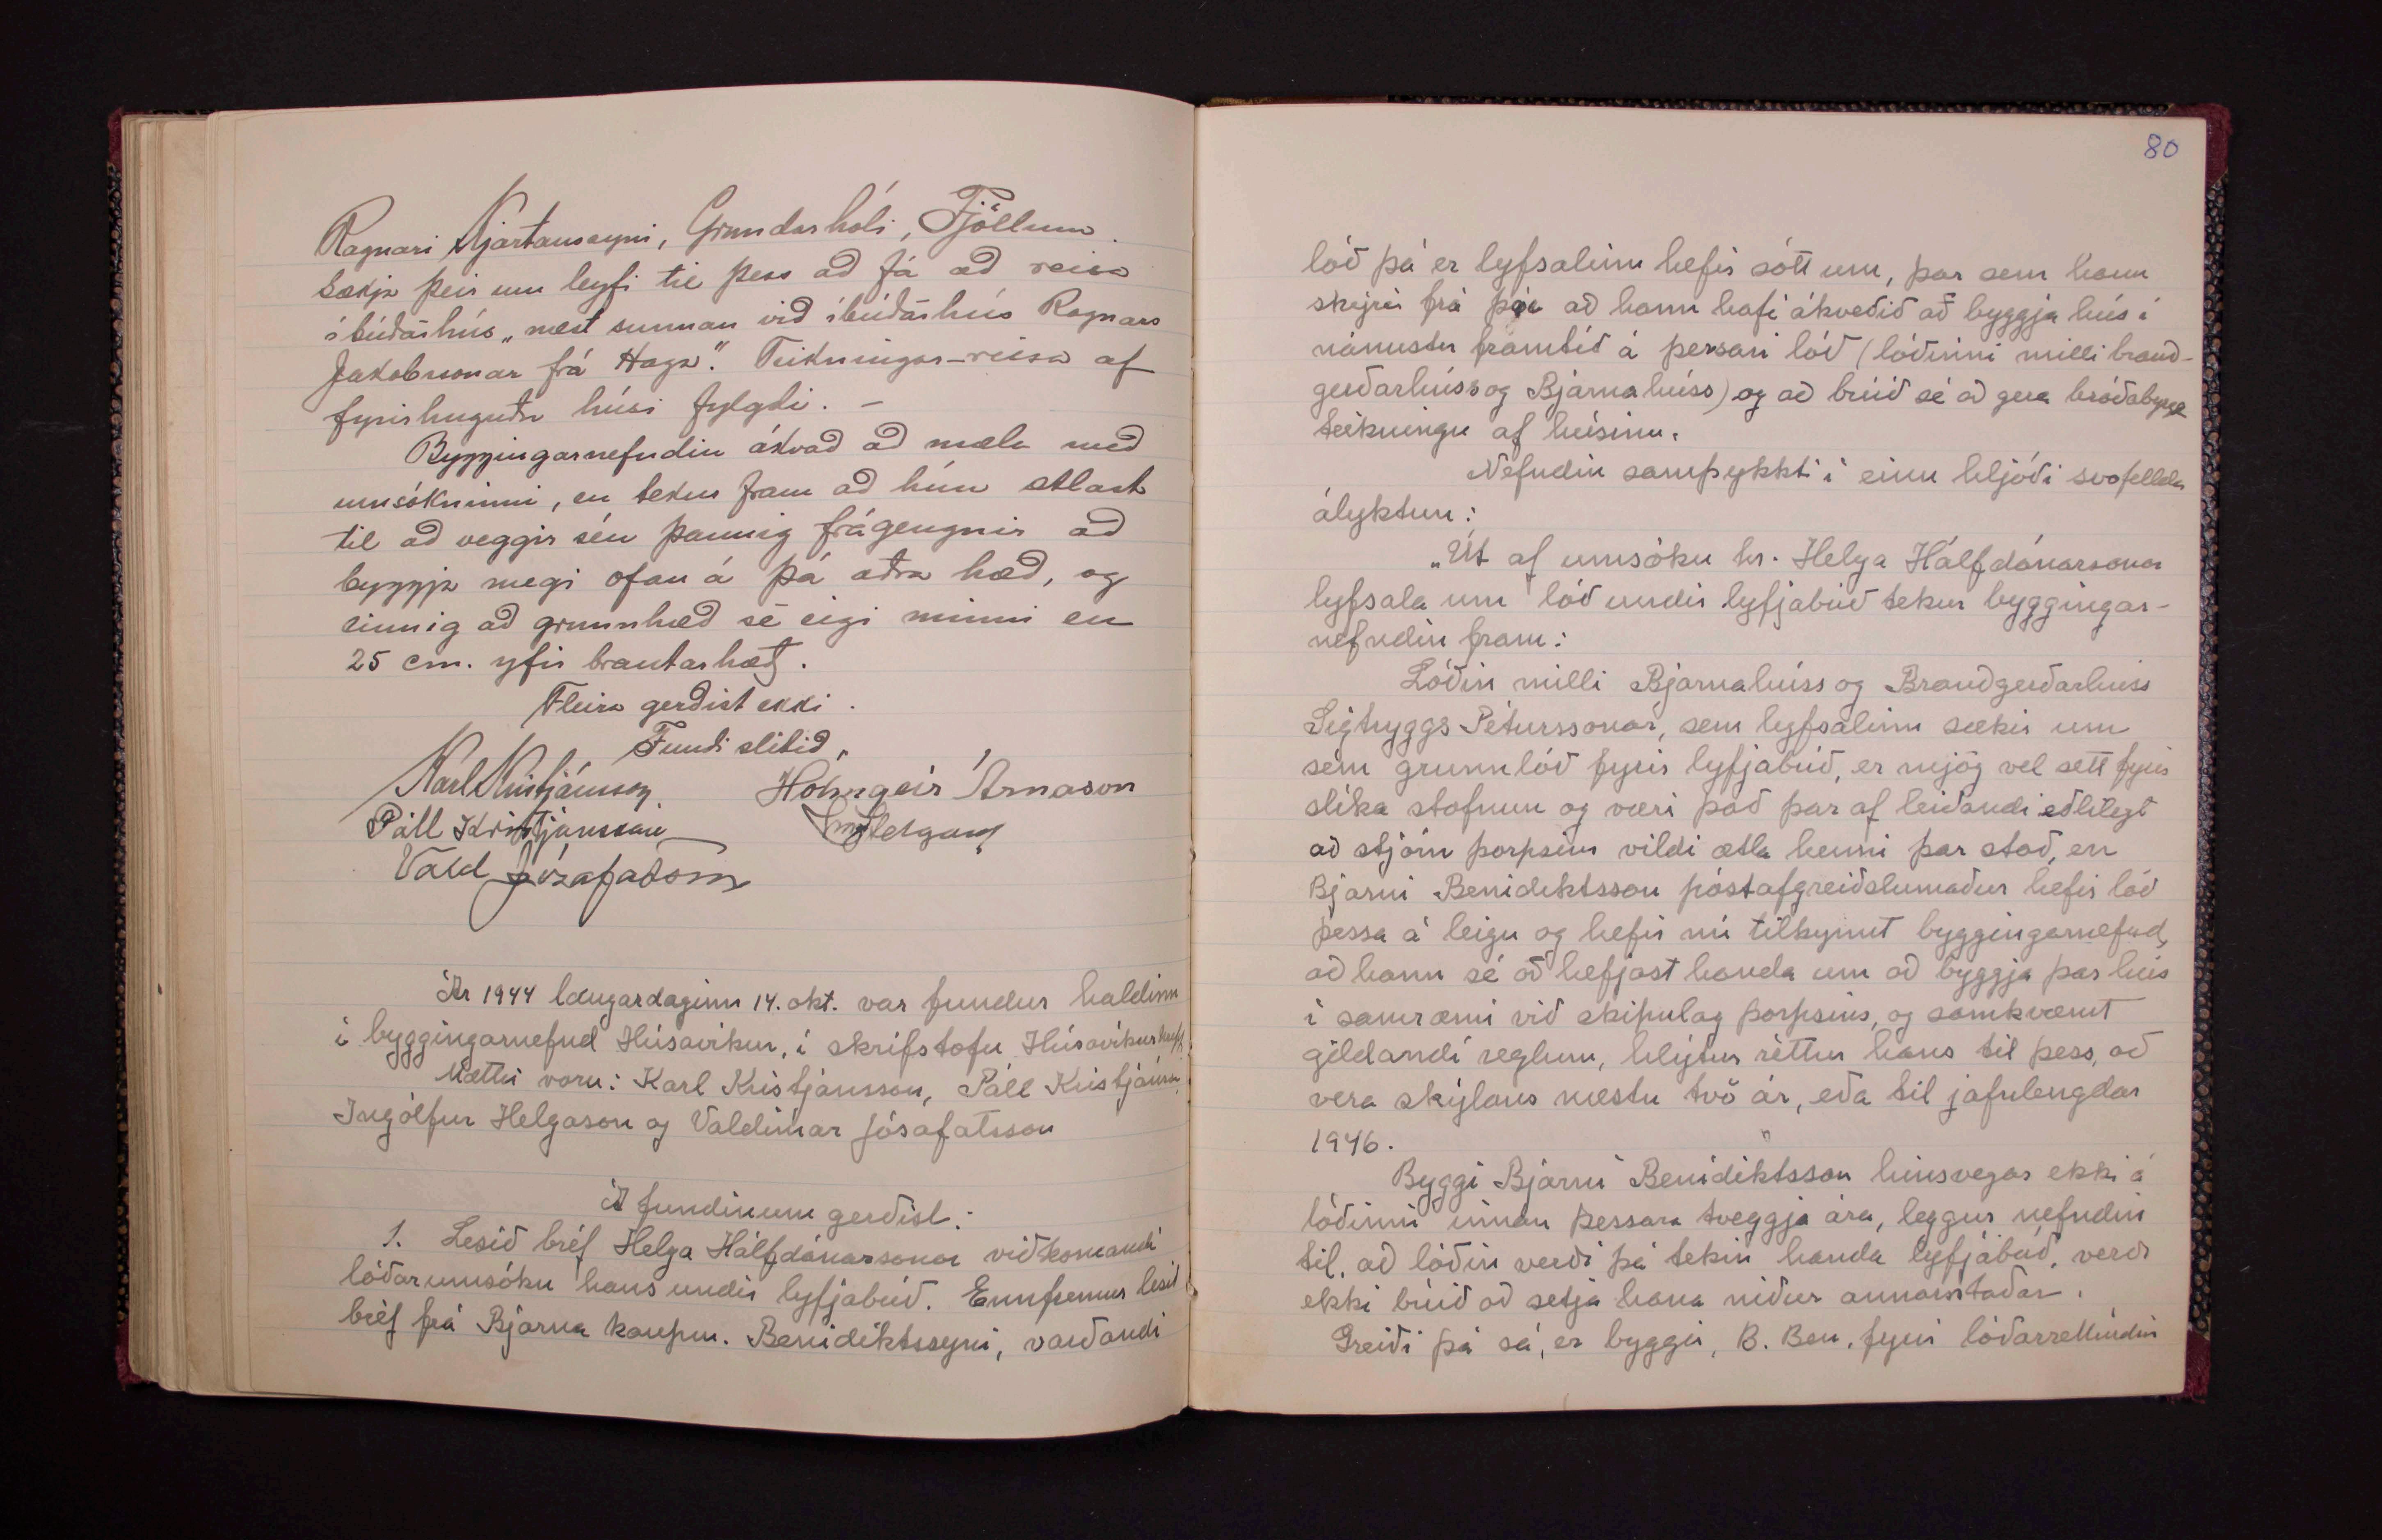 Ragnari Kjartanssyni, Grundarhóli, Fjöllum.
Sækja þeir um leyfi til þess að fá að reisa
íbúðarhús „næst sunnan við íbúðarhús Ragnars
Jakobssonar frá Haga“. Teikningar-reisa af
fyrirhuguðu húsi fylgdi. –
Byggingarnefndin ákvað að mæla með
umsókninni, en tekur fram að hún ætlast
til að veggir séu þannig frágengnir að
byggja megi ofan á þá aðra hæð, og
einnig að grunnhæð sé eigi minni en
25 cm. yfir brautarhæð.
Fleira gerðist ekki.
Fundi slitið.
Karl Kristjánsson Hólmgeir Árnason
Páll Kristjánsson Ing Helgason
Vald Jósafatsson
Ár 1944 laugardaginn 14. okt. var fundur haldinn
í byggingarnefnd Húsavíkur, í skrifstofu Húsavíkurhrepps
Mættir voru: Karl Kristjánsson, Páll Kristjánss.,
Ingólfur Helgason og Valdimar Jósafatsson
Á fundinum gerðist:
1. Lesið bréf Helga Hálfdánarsonar viðkomandi
lóðarumsókn hans undir lyfjabúð. Ennfremur lesið
bréf frá Bjarna kaupm. Benidiktssyni, varðandi
80
lóð þá er lyfsalinn hefir sótt um, þar sem hann
skýrir frá því að hann hafi ákveðið að byggja hús í
nánustu framtíð á þessari lóð (lóðinni milli brauð-
gerðarhúss og Bjarnahúss) og að búið sé að gera bráðabyrgða
teikningu af húsinu.
Nefndin samþykkti í einu hljóði svofellda
ályktun:
„Út af umsókn hr. Helga Hálfdánarsonar
lyfsala um lóð undir lyfjabúð tekur byggingar-
nefndin fram:
Lóðin milli Bjarnahúss og Brauðgerðarhúss
Sigtryggs Péturssonar, sem lyfsalinn sækir um
sem grunnlóð fyrir lyfjabúð, er mjög vel sett fyrir
slíka stofnun og væri það þar af leiðandi eðlilegt
að stjórn þorpsins vildi ætla henni þar stað, en
Bjarni Benidiktsson póstafgreiðslumaður hefir lóð
þessa á leigu og hefir nú tilkynnt byggingarnefnd,
að hann sé að hefjast handa um að byggja þar hús
í samræmi við skipulag þorpsins, og samkvæmt
gildandi reglum, hlýtur réttur hans til þess, að
vera skýlaus næstu tvö ár, eða til jafnlengdar
1946.
Byggi Bjarni Benidiktsson hinsvegar ekki á
lóðinni innan þessara tveggja ára, leggur nefndin
til, að lóðin verði þá tekin handa lyfjabúð, verði
ekki búið að setja hana niður annarstaðar.
Greiði þá sá, er byggir, B. Ben. fyrir lóðarréttindin